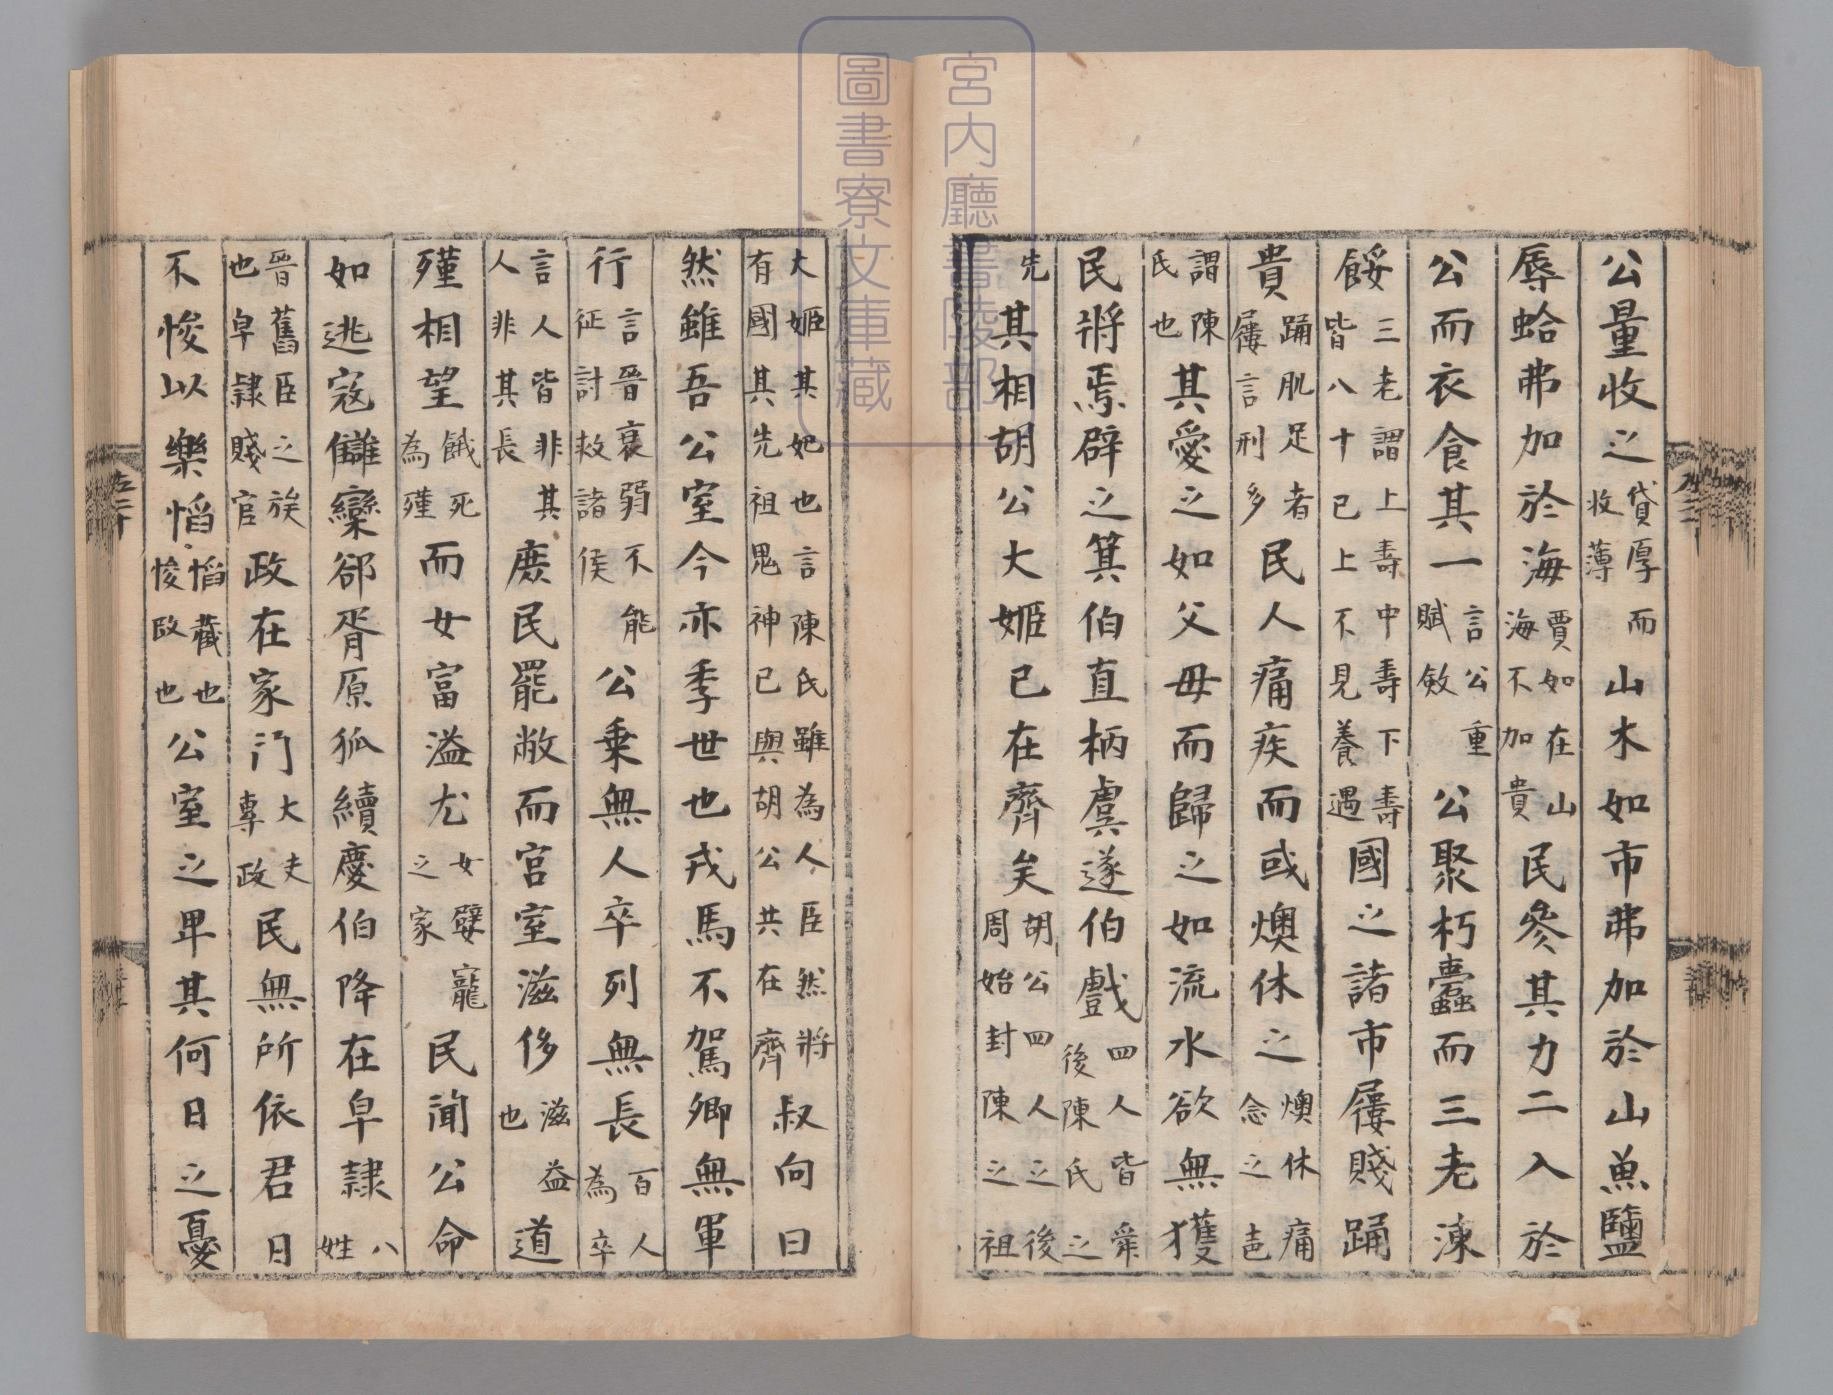 公量收之貸厚而收薄山木如市弗加於山魚鹽
辱蛤弗加於海賈如在山海不加貴民參其力二入於
公而衣食其一言公重賦斂公聚朽蠹而三老凍
餒三老謂上壽中壽下壽皆八十已上不見養遇國之諸市屨賤踊
貴踊刖足者屨言刑多民人痛疾而或燠休之燠休痛念之
謂陳氏也其愛之如父母而歸之如流水欲無獲
民將焉辟之箕伯直柄虞遂伯戲四人皆舜後陳氏之
先其相胡公大姬已在齊矣胡公四人之後周始封陳之祖
大姬其妃也言陳氏雖為人臣然將有國其先祖鬼神已與胡公共在齊叔向曰
然雖吾公室今亦季世也戎馬不駕卿無軍
行言晉衰弱不能征討救諸侯公乗無人卒列無長百人為卒
言人皆非其人非其長庶民罷敝而宮室滋侈滋益也道
殣相望餓死為殣而女富溢尤女嬖寵之家民聞公命
如逃寇讎欒郤胥原狐續慶伯降在皁隸八姓
晉舊臣之族也皁隸賤官政在家門大夫專政民無所依君日
不悛以樂慆慆藏也悛改也公室之卑其何日之憂
宮内廳書陵部
圖書寮文庫藏